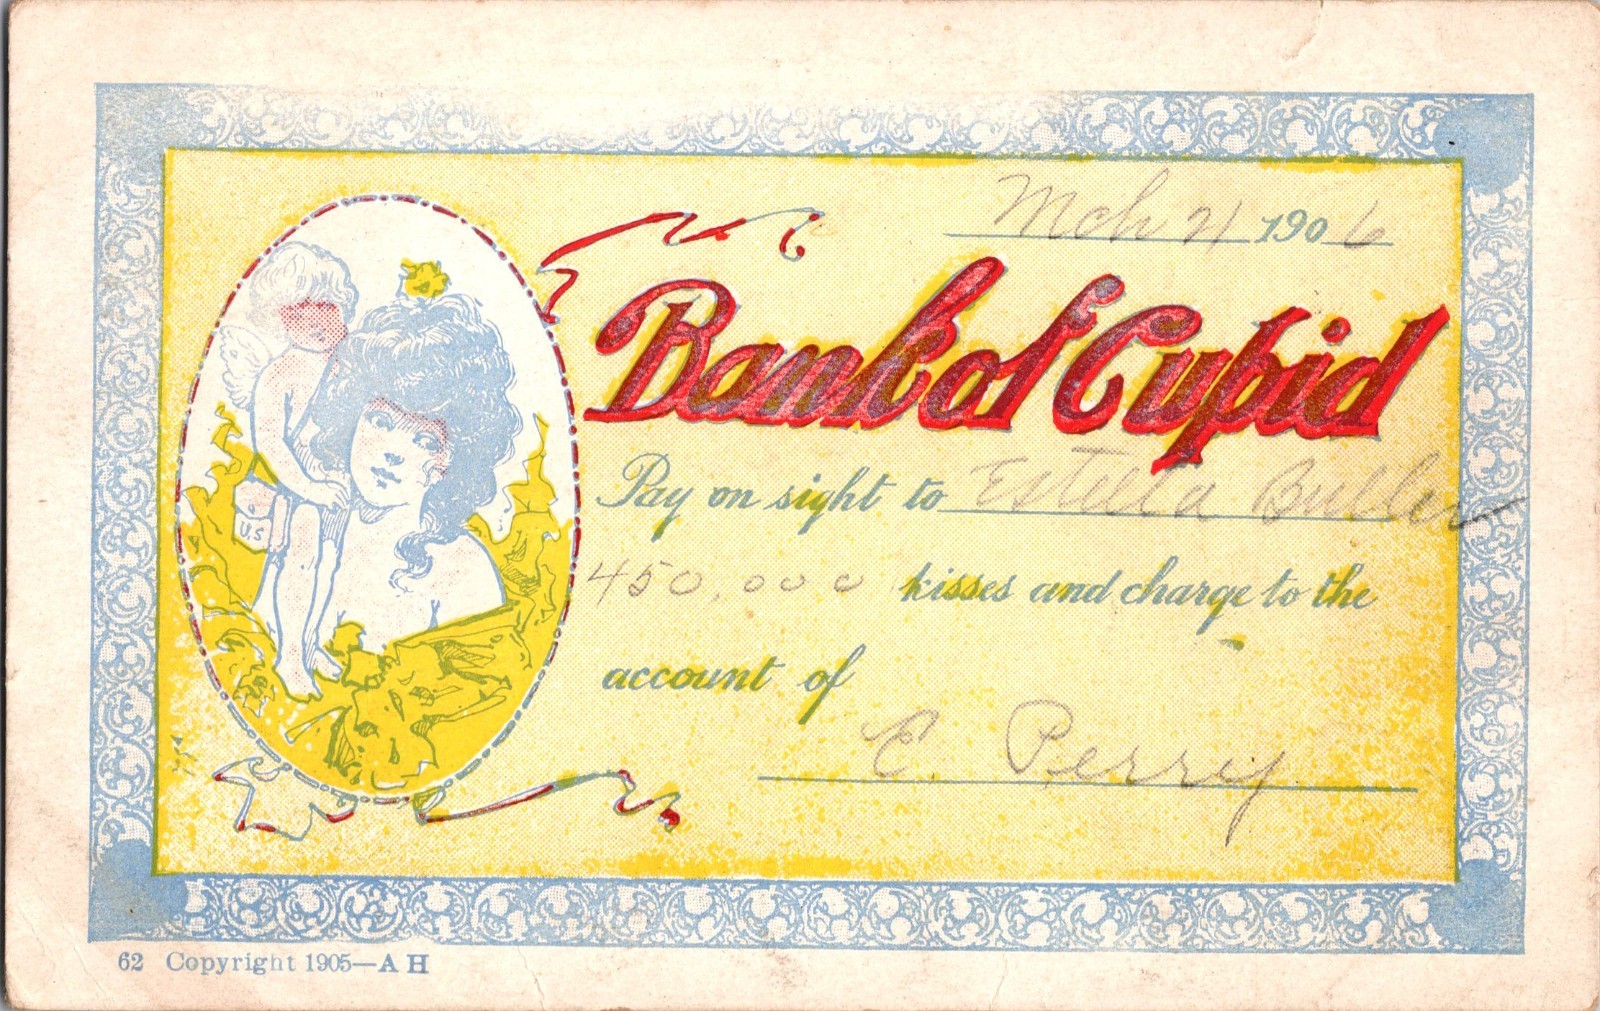 Mch 21 1906
Bank of Cupid
Pay on sight to Estella Butler
450,000 kisses and charge to the
account of
E. Perry
U.S
62 Copyright 1905—A H